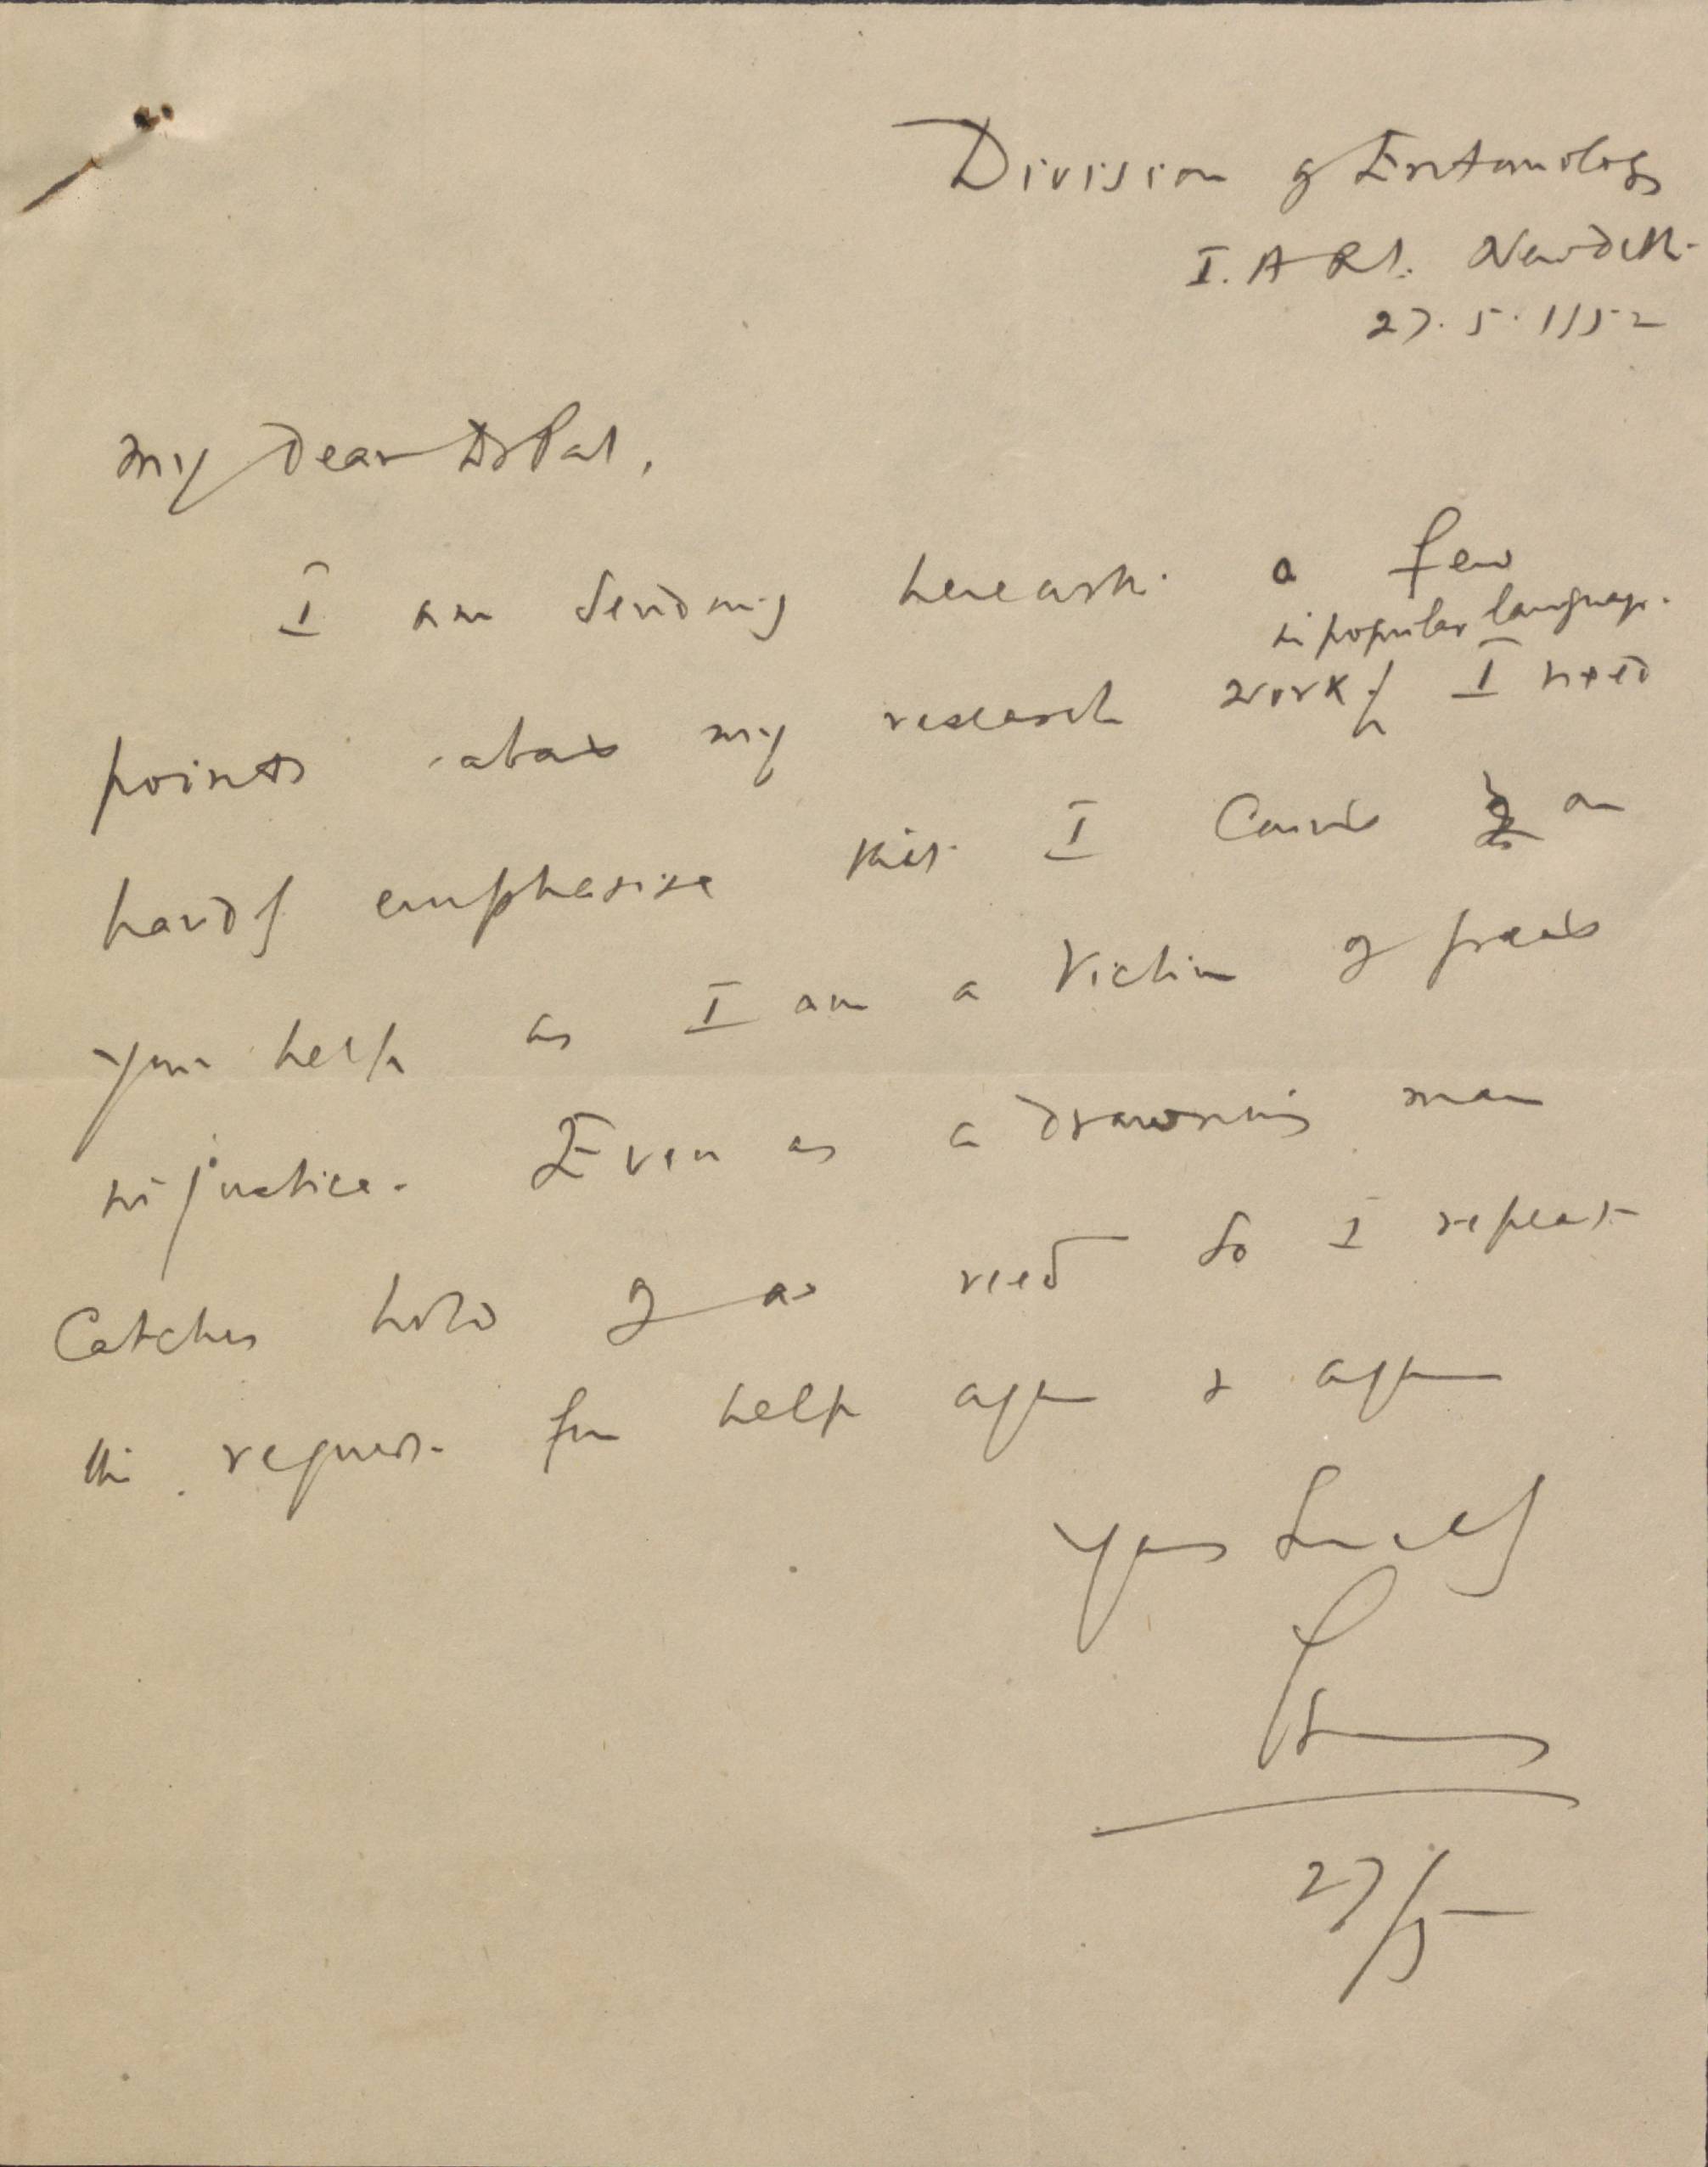 Division of Entomology
I.A.R.I. New Delhi
27.5.1952
My Dear Dr Pal,
I am sending herewith a few
in popular language.
points about my research work. I need
hardly emphasise that I count on
your help as I am a victim of great
injustice. Even as a drowning man
catches hold of a reed so I repeat
the request for help again & again
Yours Sincerely
27/5